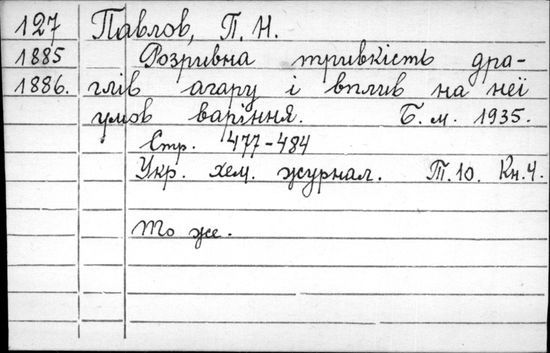 127 Павлов, П. Н.
1885 Розривна тривкість дра-
1886. глів агару і вплив на неї
умов варіння. Б. м. 1935.
Стр. 477-484
Укр. хем. журнал. Т. 10. Кн. 4.
То же.